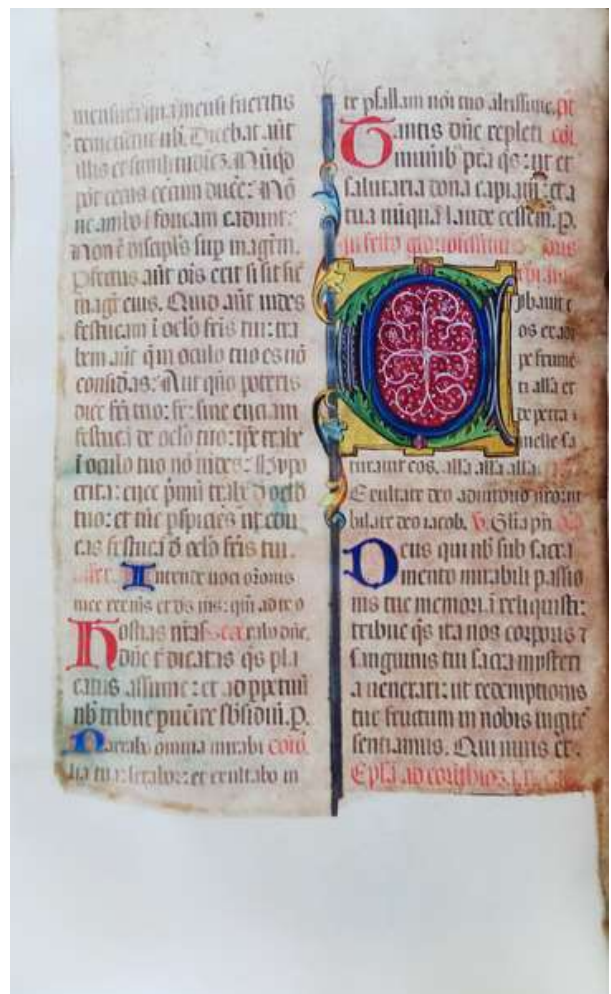 mensura qua mensi fueritis
remecietur nb. Dicebat aūt
illis et similitudiez. Nūqd
pōt cecus cecum duce: Nō
ne ambo ī foueam cadunt:
Non ē discipls sup magrm.
Pfectus aūt ois erit si sit sic
magr eius. Quid aūt uides
festucam ī oclo fris tui: tra
bem aūt q̄ in oculo tuo es nō
consid̄as: Aut quo poteris
dice fri tuo: fr: sine eiciam
festucā de oclo tuo: ipe trabē
ī oculo tuo nō uides: Hypo
crita: eice pmū trabē d oclo
tuo: et tūc pspicies ut edu
cas festucā d oclo fris tui.
Intende uoci orōnis
mee rex ms et ds ms: qm ad te o
Hostias nras rabo dne.
dne t dicatas qs pla
catus assume: et ad ppetuū
nb tribue puenire sbsidiū. P.
Narrabo omnia mirabi coīo.
lia tua: letabor: et exultabo in
te psallam noi tuo altissime. pt
Tantis dne repleti coī.
munib pta qs: ut et
salutaria dona capiam: et a
tua nūqā laude cessem. P.
In festo gloriosissimi
Cibauit e
os ex adi
pe frume
ti alla et
de petra
melle sa
turauit eos. alla alla alla.
Exultate deo adiutorio nro: iu
bilate deo iacob. V. Glia pri
Deus qui nb sub sacra
mento mirabili passio
nis tue memoriā reliquisti:
tribue qs ita nos corporis ⁊
sanguinis tui sacra mysteri
a uenerari: ut redemptionis
tue fructum in nobis iugite
sentiamus. Qui uiuis et.
Epla ad corinthios